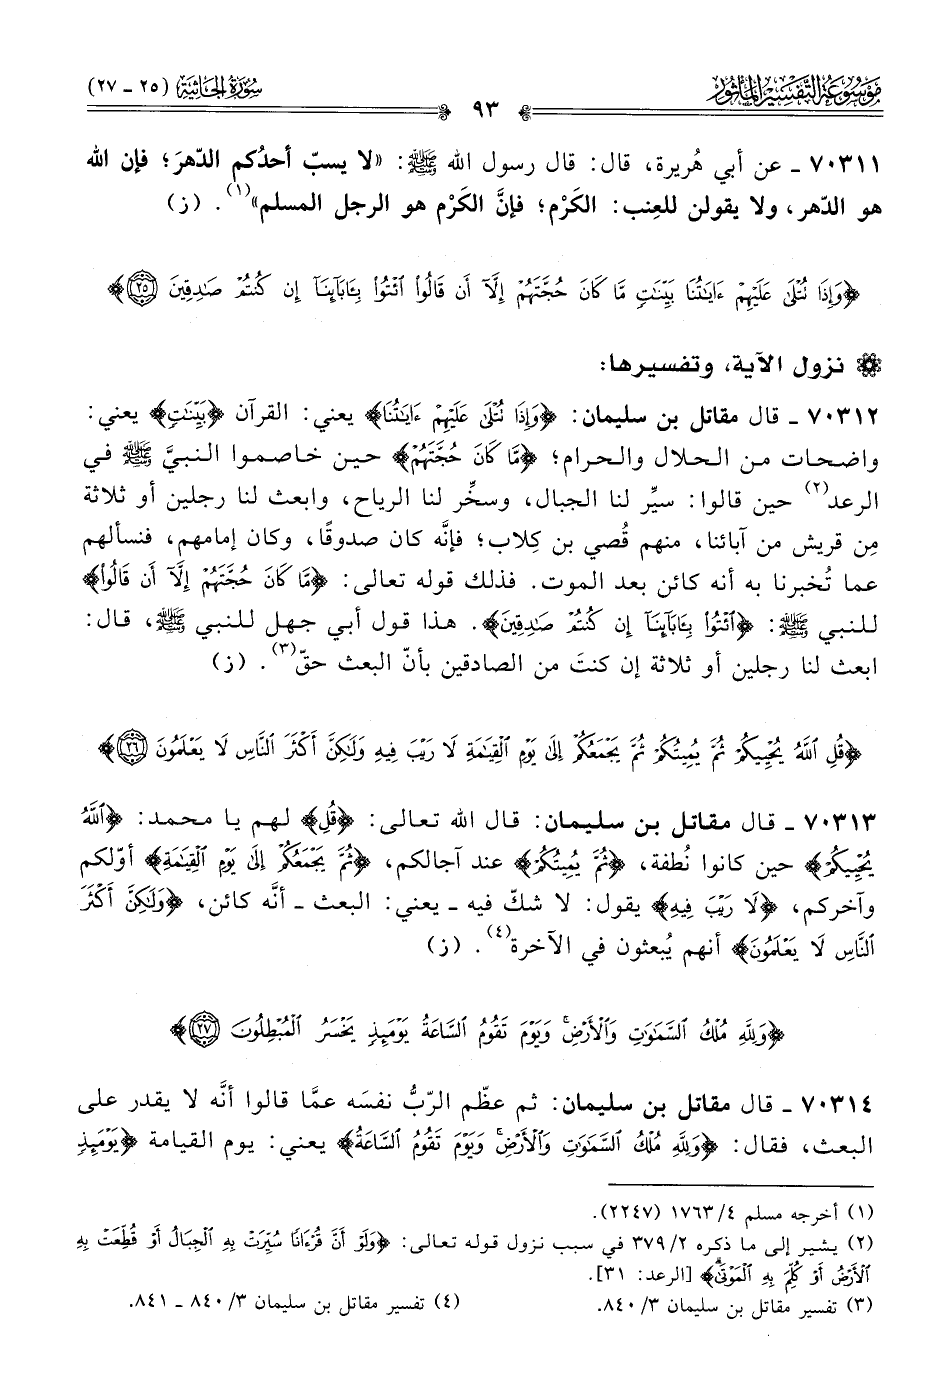 موسوعة التفسير المأثور
٩٣
سورة الجاثية (٢٥ - ٢٧)
٧٠٣١١ - عن أبي هُريرة، قال: قال رسول الله ﷺ: «لا يسبّ أحدُكم الدّهرَ؛ فإن الله
هو الدّهر، ولا يقولن للعِنب: الكَرْم؛ فإنَّ الكَرْم هو الرجل المسلم»(١). (ز)
﴿وَإِذَا تُتْلَىٰ عَلَيْهِمْ ءَايَٰتُنَا بَيِّنَٰتٍ مَّا كَانَ حُجَّتَهُمْ إِلَّآ أَن قَالُوا۟ ٱئْتُوا۟ بِـَٔابَآئِنَآ إِن كُنتُمْ صَٰدِقِينَ ٢٥﴾
نزول الآية، وتفسيرها:
٧٠٣١٢ - قال مقاتل بن سليمان: ﴿وَإِذَا تُتْلَىٰ عَلَيْهِمْ ءَايَٰتُنَا﴾ يعني: القرآن ﴿بَيِّنَٰتٍ﴾ يعني:
واضحات من الحلال والحرام؛ ﴿مَّا كَانَ حُجَّتَهُمْ﴾ حين خاصموا النبيَّ ﷺ في
الرعد(٢) حين قالوا: سيِّر لنا الجبال، وسخِّر لنا الرياح، وابعث لنا رجلين أو ثلاثة
مِن قريش من آبائنا، منهم قُصي بن كِلاب؛ فإنَّه كان صدوقًا، وكان إمامهم، فنسألهم
عما تُخبرنا به أنه كائن بعد الموت. فذلك قوله تعالى: ﴿مَّا كَانَ حُجَّتَهُمْ إِلَّآ أَن قَالُوا۟﴾
للنبي ﷺ: ﴿ٱئْتُوا۟ بِـَٔابَآئِنَآ إِن كُنتُمْ صَٰدِقِينَ﴾. هذا قول أبي جهل للنبي ﷺ، قال:
ابعث لنا رجلين أو ثلاثة إن كنتَ من الصادقين بأنّ البعث حقّ(٣). (ز)
﴿قُلِ ٱللَّهُ يُحْيِيكُمْ ثُمَّ يُمِيتُكُمْ ثُمَّ يَجْمَعُكُمْ إِلَىٰ يَوْمِ ٱلْقِيَٰمَةِ لَا رَيْبَ فِيهِ وَلَٰكِنَّ أَكْثَرَ ٱلنَّاسِ لَا يَعْلَمُونَ ٢٦﴾
٧٠٣١٣ - قال مقاتل بن سليمان: قال الله تعالى: ﴿قُلِ﴾ لهم يا محمد: ﴿ٱللَّهُ
يُحْيِيكُمْ﴾ حين كانوا نُطفة، ﴿ثُمَّ يُمِيتُكُمْ﴾ عند آجالكم، ﴿ثُمَّ يَجْمَعُكُمْ إِلَىٰ يَوْمِ ٱلْقِيَٰمَةِ﴾ أوّلكم
وآخركم، ﴿لَا رَيْبَ فِيهِ﴾ يقول: لا شكّ فيه - يعني: البعث - أنَّه كائن، ﴿وَلَٰكِنَّ أَكْثَرَ
ٱلنَّاسِ لَا يَعْلَمُونَ﴾ أنهم يُبعثون في الآخرة(٤). (ز)
﴿وَلِلَّهِ مُلْكُ ٱلسَّمَٰوَٰتِ وَٱلْأَرْضِ ۚ وَيَوْمَ تَقُومُ ٱلسَّاعَةُ يَوْمَئِذٍ يَخْسَرُ ٱلْمُبْطِلُونَ ٢٧﴾
٧٠٣١٤ - قال مقاتل بن سليمان: ثم عظّم الرّبُّ نفسَه عمَّا قالوا أنَّه لا يقدر على
البعث، فقال: ﴿وَلِلَّهِ مُلْكُ ٱلسَّمَٰوَٰتِ وَٱلْأَرْضِ ۚ وَيَوْمَ تَقُومُ ٱلسَّاعَةُ﴾ يعني: يوم القيامة ﴿يَوْمَئِذٍ
(١) أخرجه مسلم ٤/ ١٧٦٣ (٢٢٤٧).
(٢) يشير إلى ما ذكره ٢/ ٣٧٩ في سبب نزول قوله تعالى: ﴿وَلَوْ أَنَّ قُرْءَانًا سُيِّرَتْ بِهِ ٱلْجِبَالُ أَوْ قُطِّعَتْ بِهِ
ٱلْأَرْضُ أَوْ كُلِّمَ بِهِ ٱلْمَوْتَىٰ ۗ﴾ [الرعد: ٣١].
(٣) تفسير مقاتل بن سليمان ٣/ ٨٤٠.
(٤) تفسير مقاتل بن سليمان ٣/ ٨٤٠ - ٨٤١.